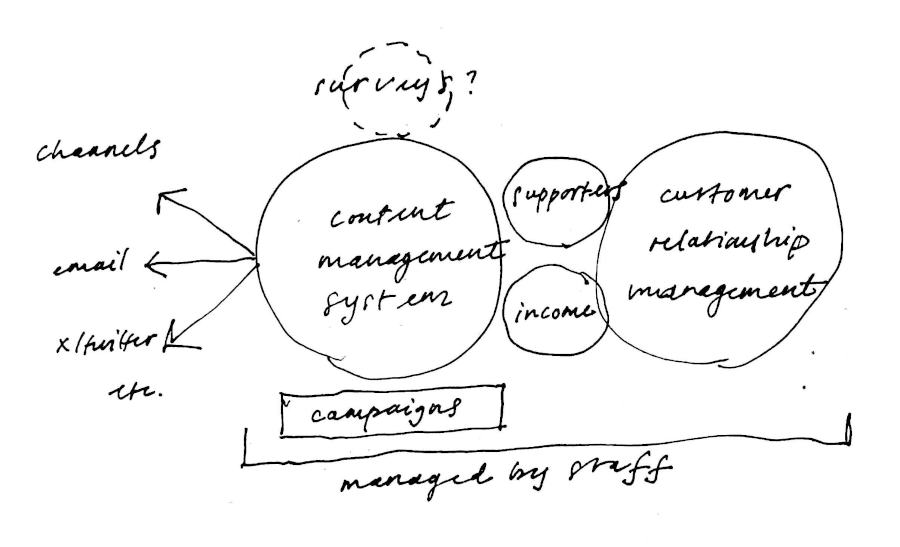 surveys?
channels
email
x/twitter
etc.
content
management
system
supporters
income
customer
relationship
management
campaigns
managed by staff